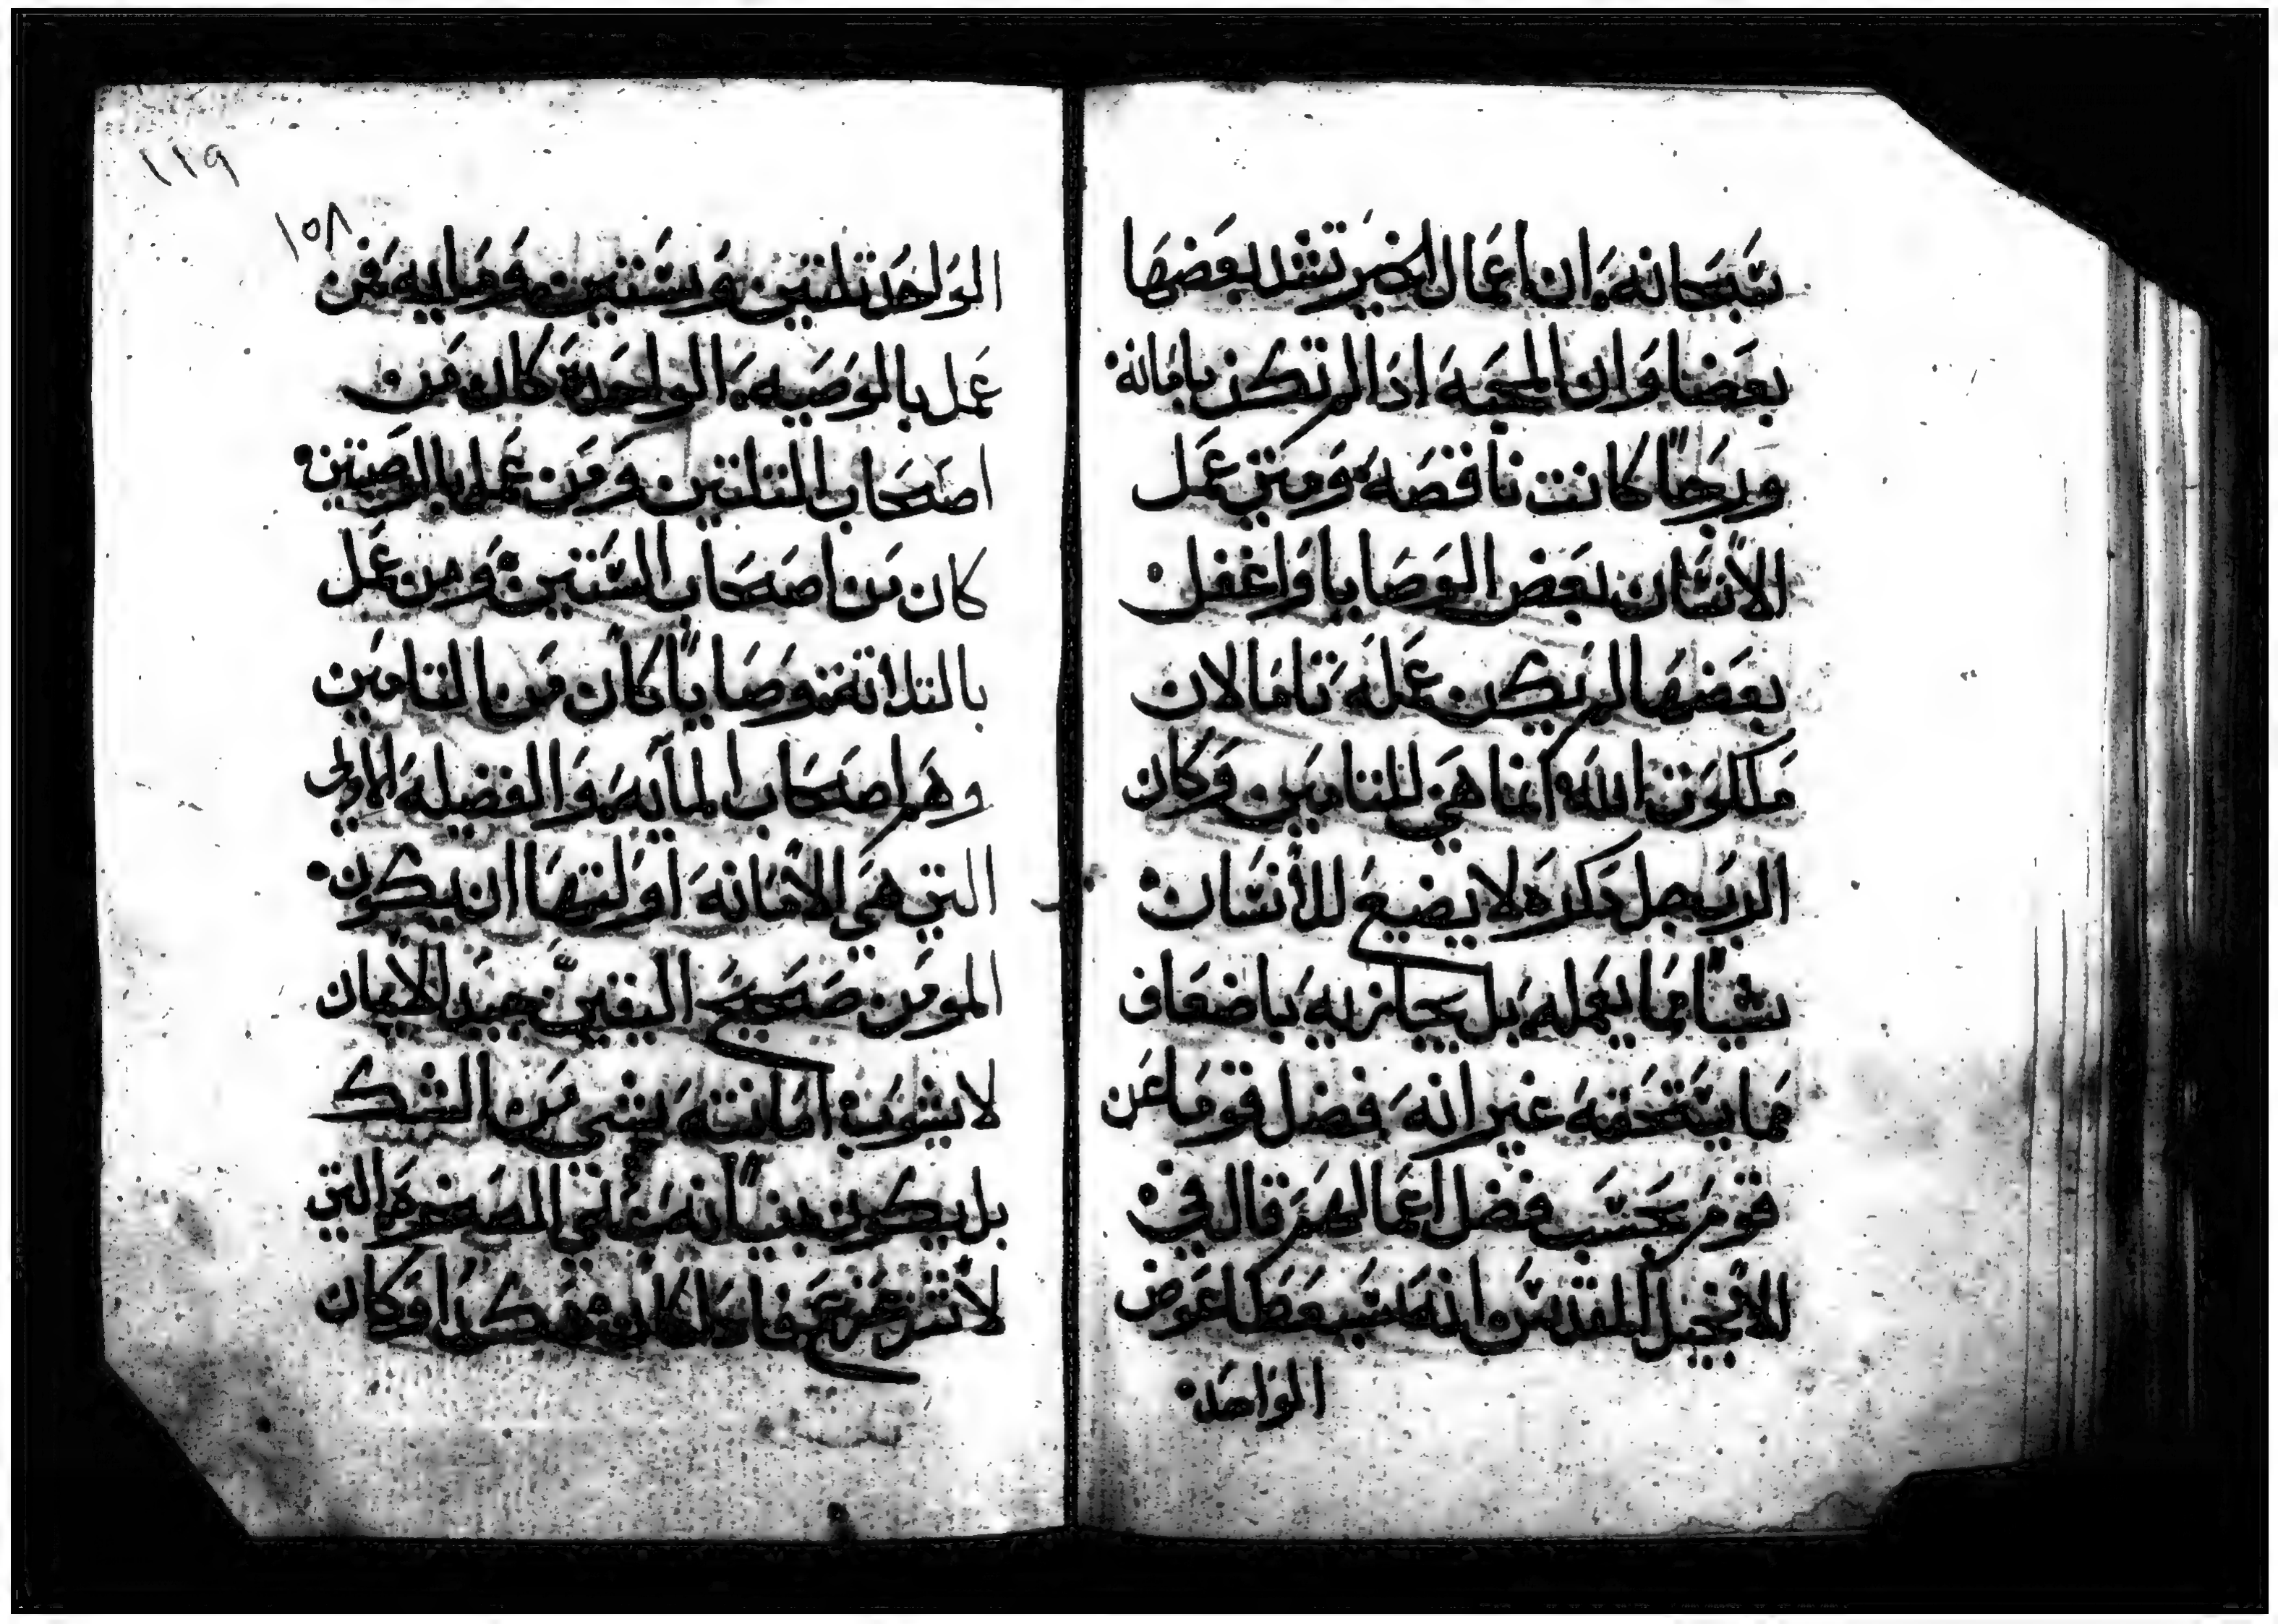 سبحانه. ان اعمال الخير تشد بعضها
بعضا وان المحبه اذا لم تكن بامانة
ورجًا كانت ناقصه ومتى عمل
الانسان بعض الوصايا واغفل
بعضها لم يكن عمله تاما لان
ملكوت الله انما هي للتامين وكان
الرب جل ذكره لا يضيع للانسان
شيًا مما يعمله بل يجازيه باضعاف
مما يستحقه غير انه فضل قوما عن
قوم بحسب فضل اعمالهم قال في
الانجيل المقدس انه سيعطا عوض
الواحد
١١٩
١٥٨
الواحد تلتين وستين ومايه فمن
عمل بالوصيه الواحدة كان من
اصحاب التلتين ومن عمل بالوصيتين
كان من اصحاب الستين ومن عمل
بالتلاتة وصايا كان من التامين
وهم اصحاب المايه والفضيله الاولى
التي هي الامانه اولتها ان يكون
المومن صحيح اليقين جيد الايمان
لا يشوب امانته بشي من الشك
بل يكون بنيانه على الصخره التي
لا تتزعزع فاذا كان هكدا وكان